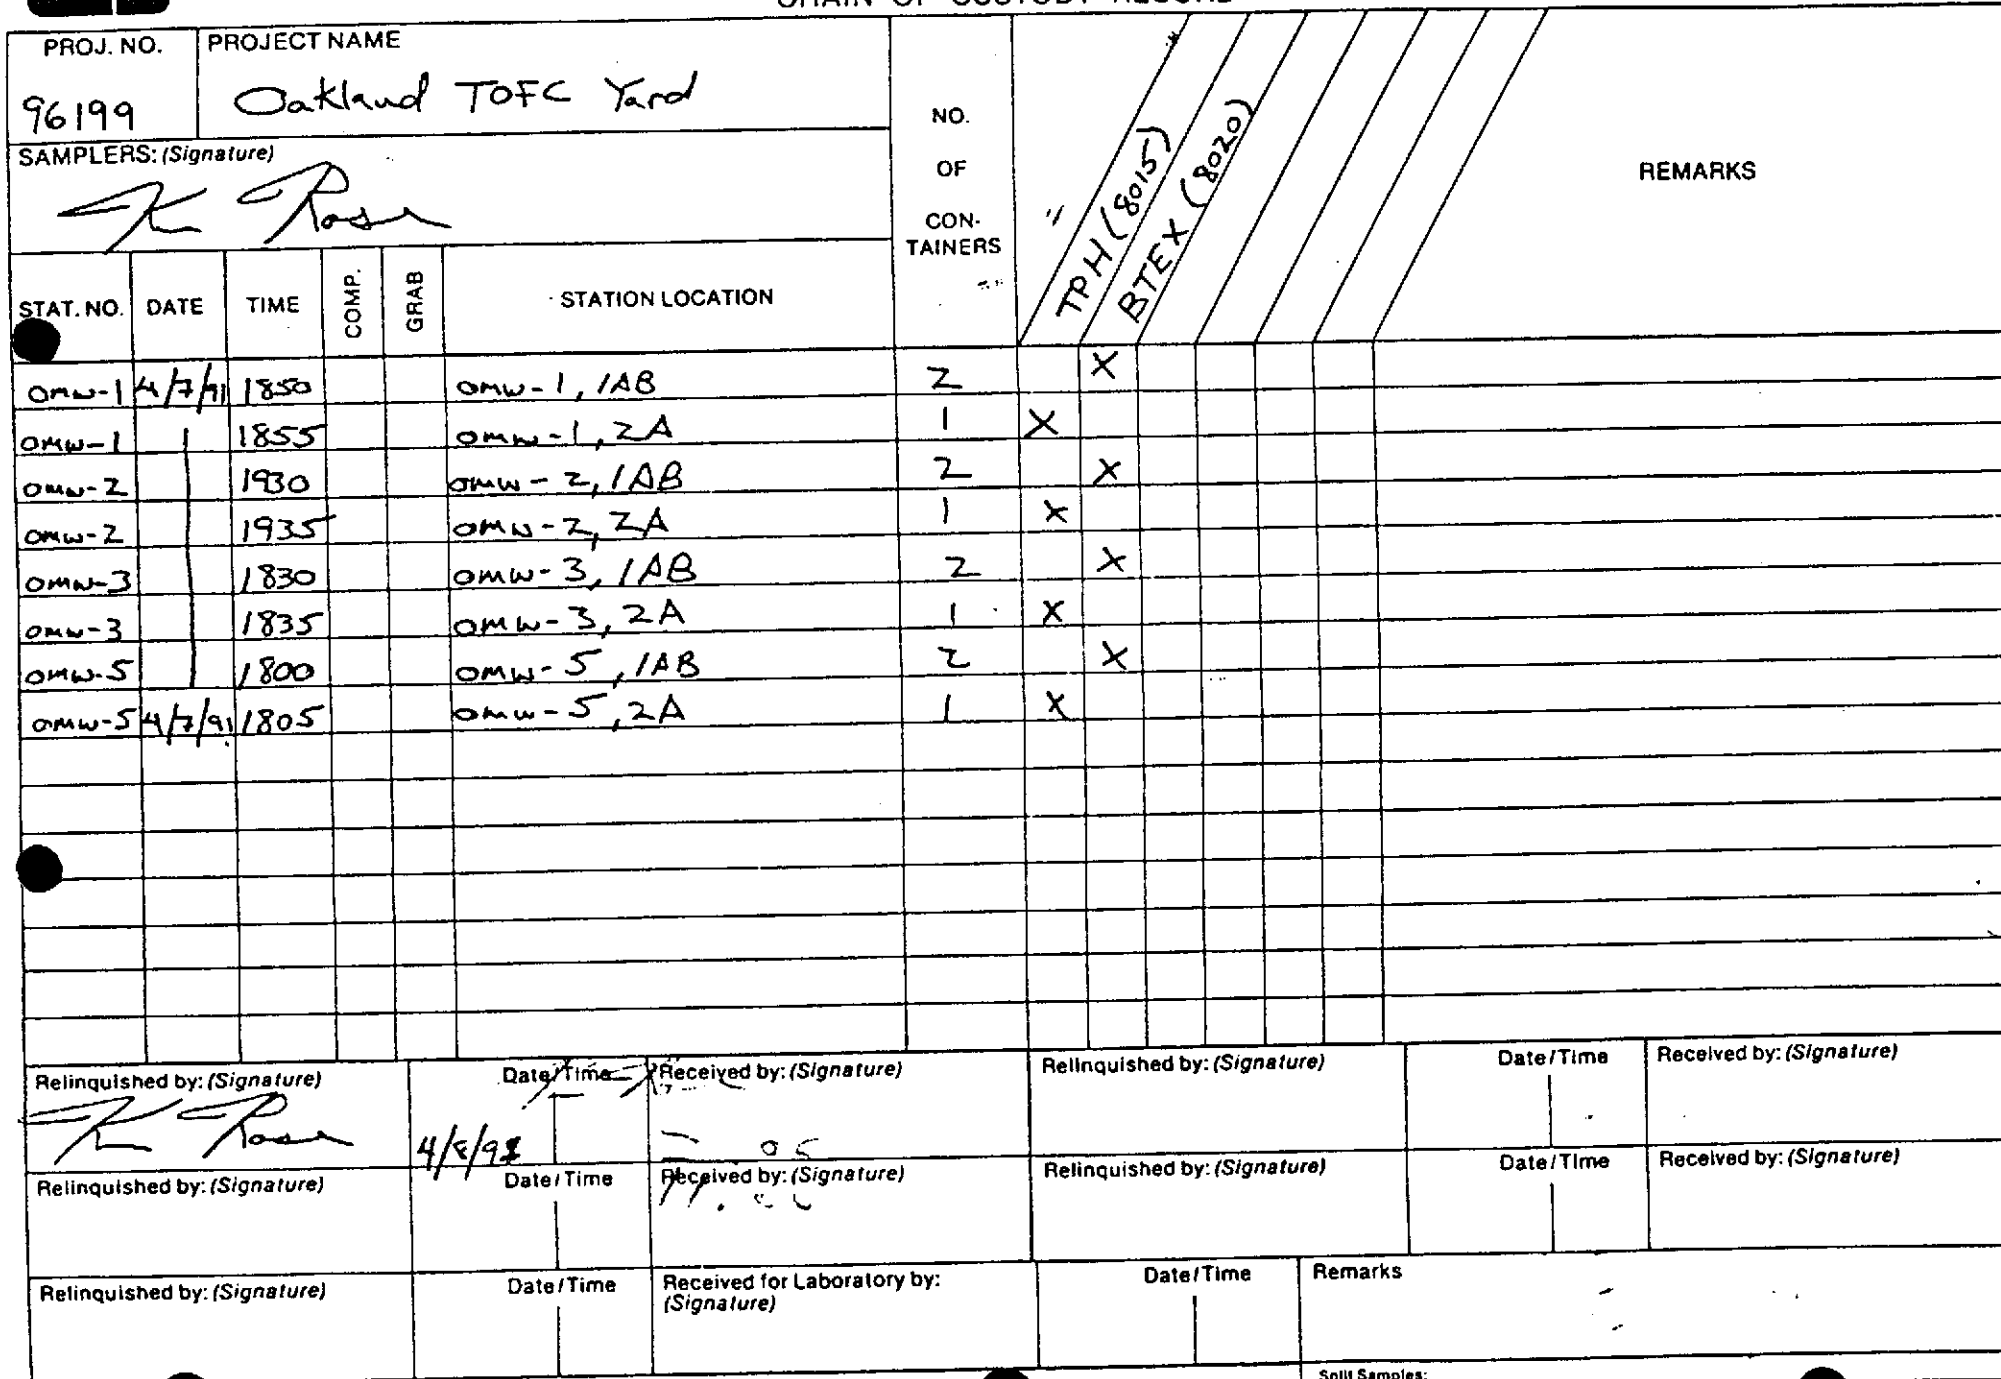 CHAIN OF CUSTODY RECORD
PROJ. NO. PROJECT NAME
96199 Oakland TOFC Yard
SAMPLERS: (Signature)
NO.
OF
CON-
TAINERS
TPH (8015)
BTEX (8020)
REMARKS
STAT. NO. DATE TIME COMP. GRAB STATION LOCATION
OMW-1 4/7/91 1850 OMW-1, 1AB 2 X
OMW-1 1855 OMW-1, 2A 1 X
OMW-2 1930 OMW-2, 1AB 2 X
OMW-2 1935 OMW-2, 2A 1 X
OMW-3 1830 OMW-3, 1AB 2 X
OMW-3 1835 OMW-3, 2A 1 X
OMW-5 1800 OMW-5, 1AB 2 X
OMW-5 4/7/91 1805 OMW-5, 2A 1 X
Relinquished by: (Signature) Date/Time Received by: (Signature) Relinquished by: (Signature) Date/Time Received by: (Signature)
4/8/91
Relinquished by: (Signature) Date/Time Received by: (Signature) Relinquished by: (Signature) Date/Time Received by: (Signature)
Relinquished by: (Signature) Date/Time Received for Laboratory by: (Signature) Date/Time Remarks
Split Samples: